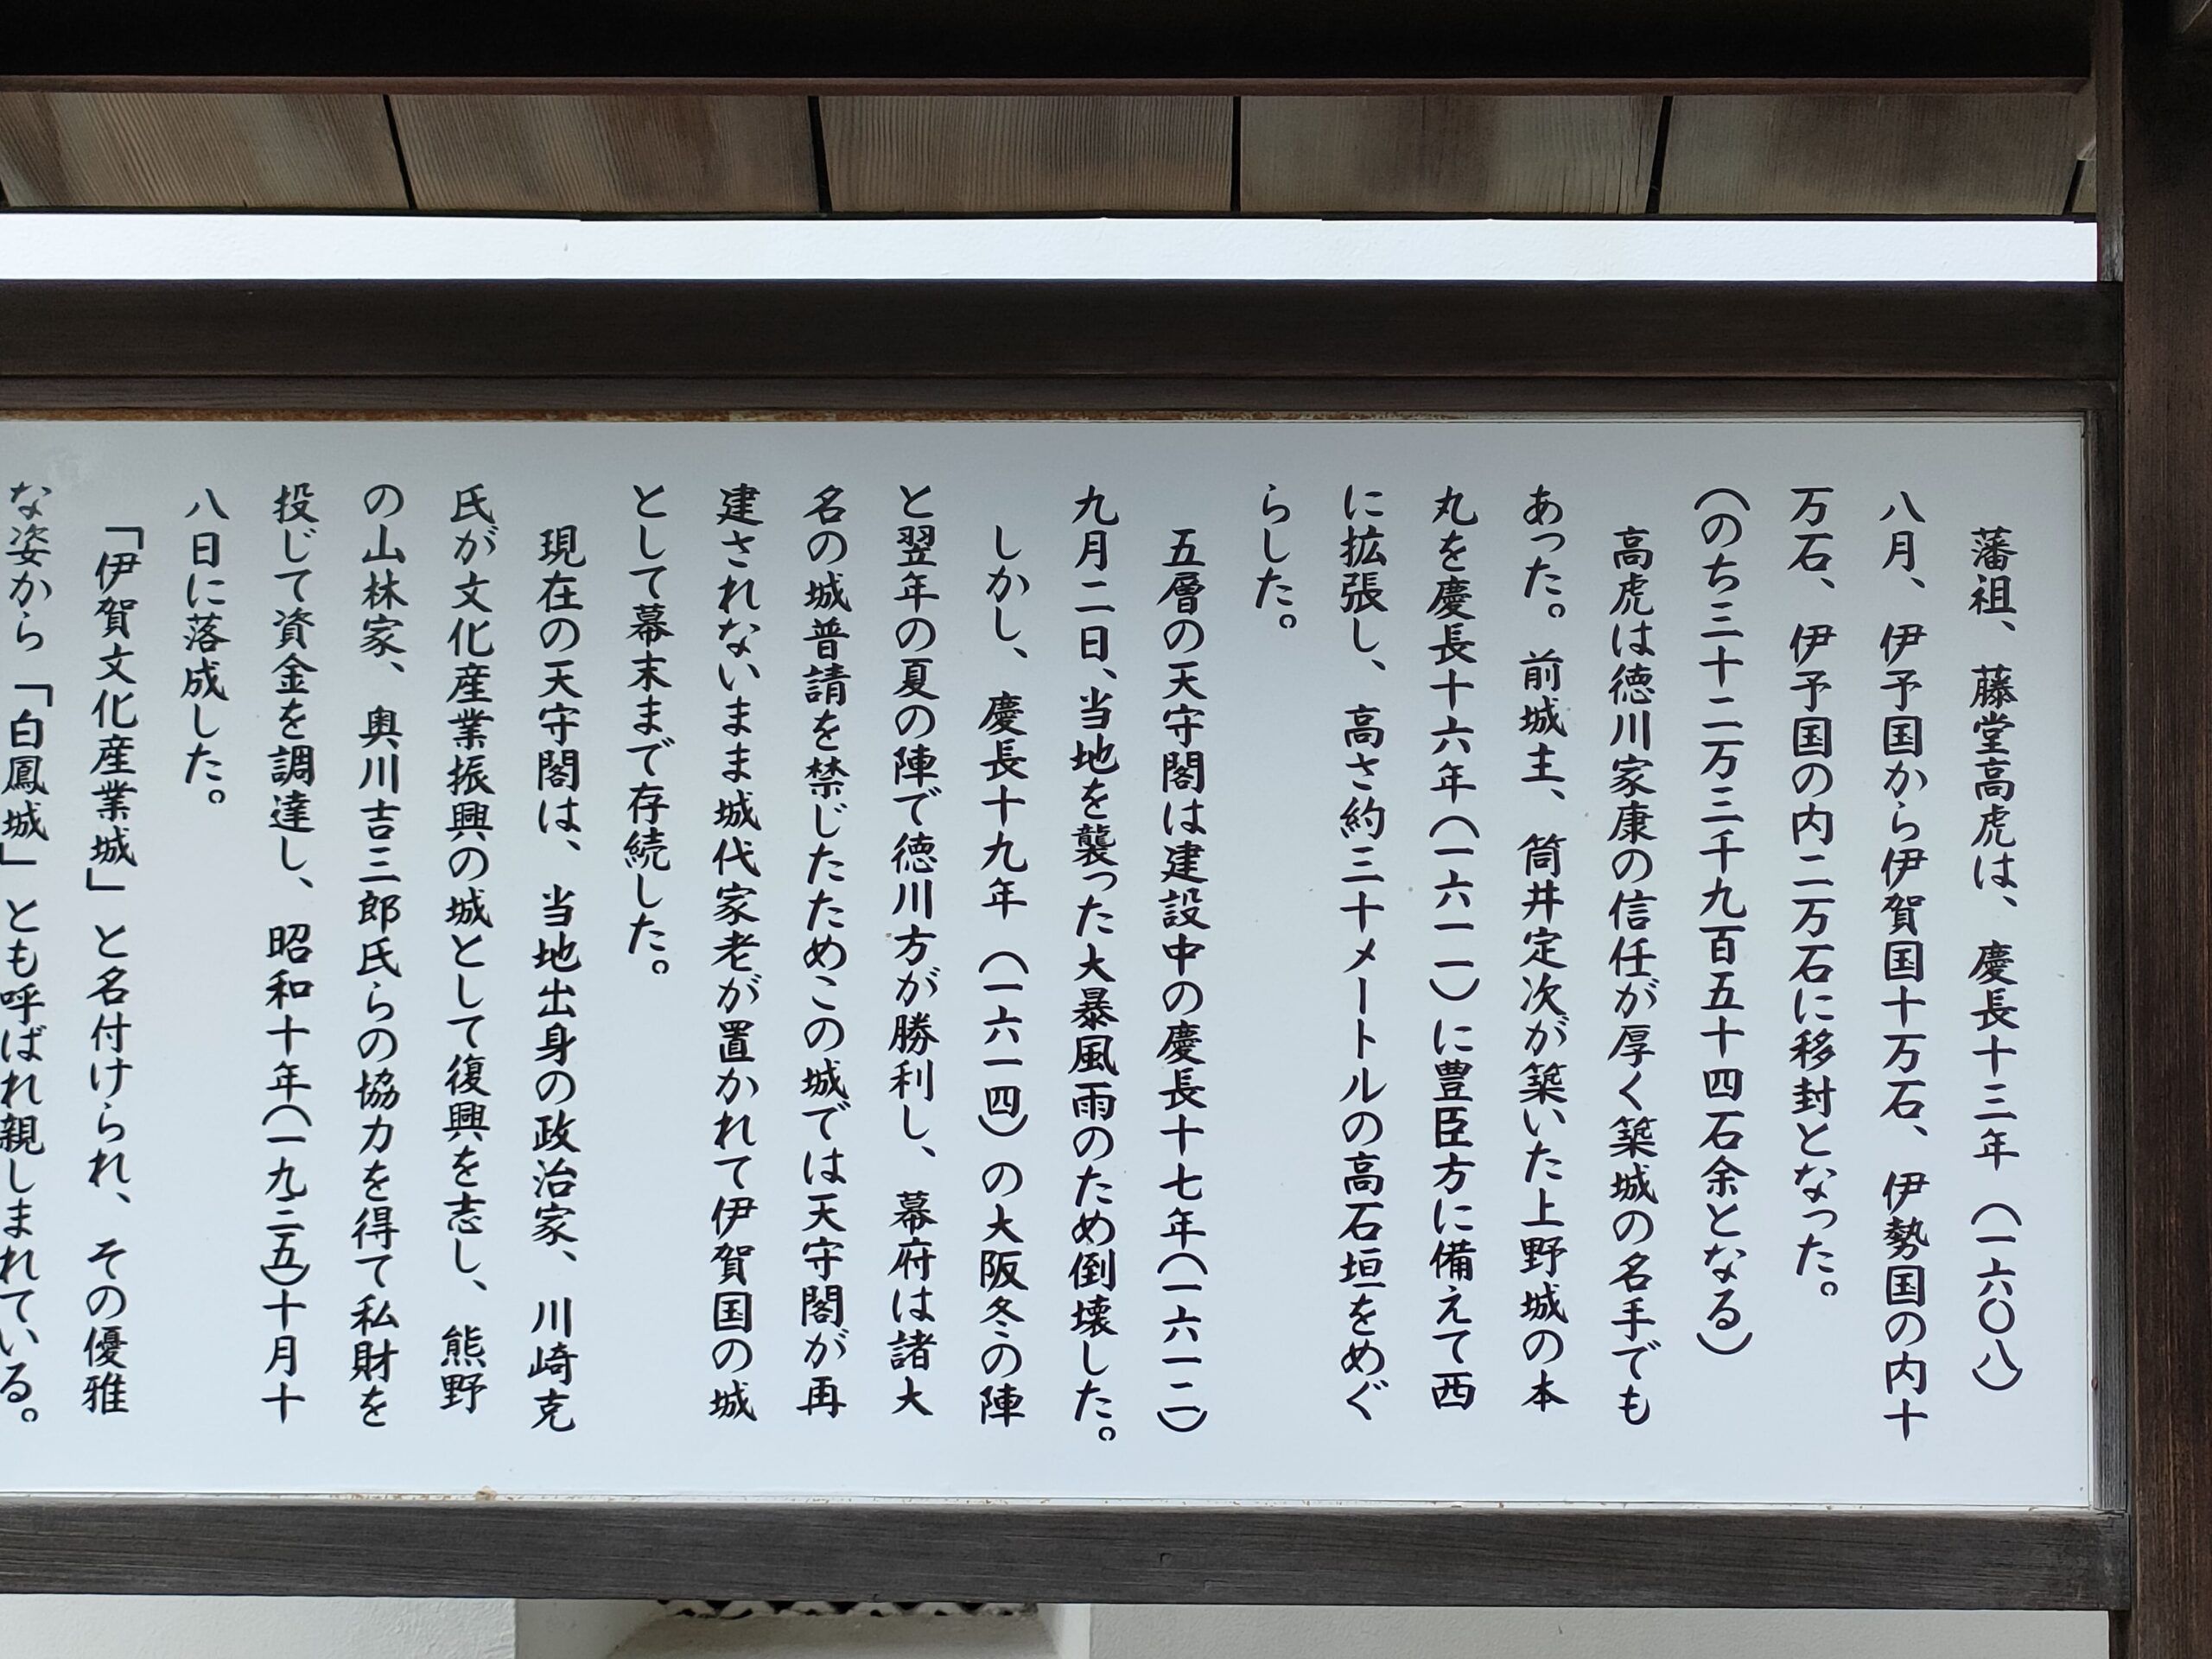 藩祖、藤堂高虎は、慶長十三年(一六〇八)
八月、伊予国から伊賀国十万石、伊勢国の内十
万石、伊予国の内二万石に移封となった。
(のち三十二万三千九百五十四石余となる)
高虎は徳川家康の信任が厚く築城の名手でも
あった。前城主、筒井定次が築いた上野城の本
丸を慶長十六年(一六一一)に豊臣方に備えて西
に拡張し、高さ約三十メートルの高石垣をめぐ
らした。
五層の天守閣は建設中の慶長十七年(一六一二)
九月二日、当地を襲った大暴風雨のため倒壊した。
しかし、慶長十九年(一六一四)の大阪冬の陣
と翌年の夏の陣で徳川方が勝利し、幕府は諸大
名の城普請を禁じたためこの城では天守閣が再
建されないまま城代家老が置かれて伊賀国の城
として幕末まで存続した。
現在の天守閣は、当地出身の政治家、川崎克
氏が文化産業振興の城として復興を志し、熊野
の山林家、奥川吉三郎氏らの協力を得て私財を
投じて資金を調達し、昭和十年(一九三五)十月十
八日に落成した。
「伊賀文化産業城」と名付けられ、その優雅
な姿から「白鳳城」とも呼ばれ親しまれている。